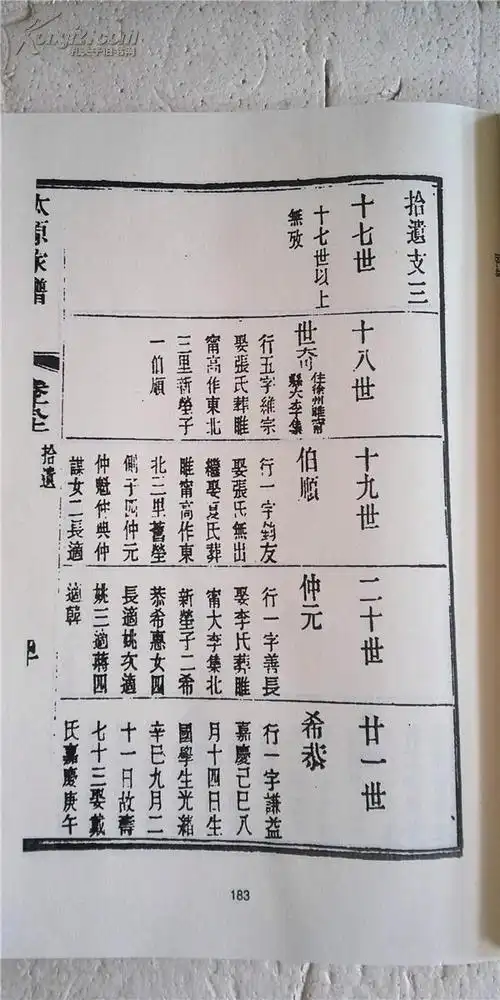 Kongfz.com
孔夫子旧书网
拾遺支三
十七世
十七世以上
無攷
十八世
世奇
住徐州睢甯
縣大李集
行五字維宗
娶張氏葬睢
甯高作東北
三里新塋子
一伯順
十九世
伯順
行一字
友
娶張氏無出
繼娶夏氏葬
睢甯高作東
北三里舊塋
子四仲元
仲魁仲典仲
謀女二長適
適韓
二十世
仲元
行一字善長
娶李氏葬睢
甯大李集北
新塋子二希
恭希惠女四
長適姚次適
姚三適蔣四
廿一世
希恭
行一字謙益
嘉慶己巳八
月十四日生
國學生光緒
辛巳九月二
十一日故壽
七十三娶戴
氏嘉慶庚午
太原家譜
拾遺
183